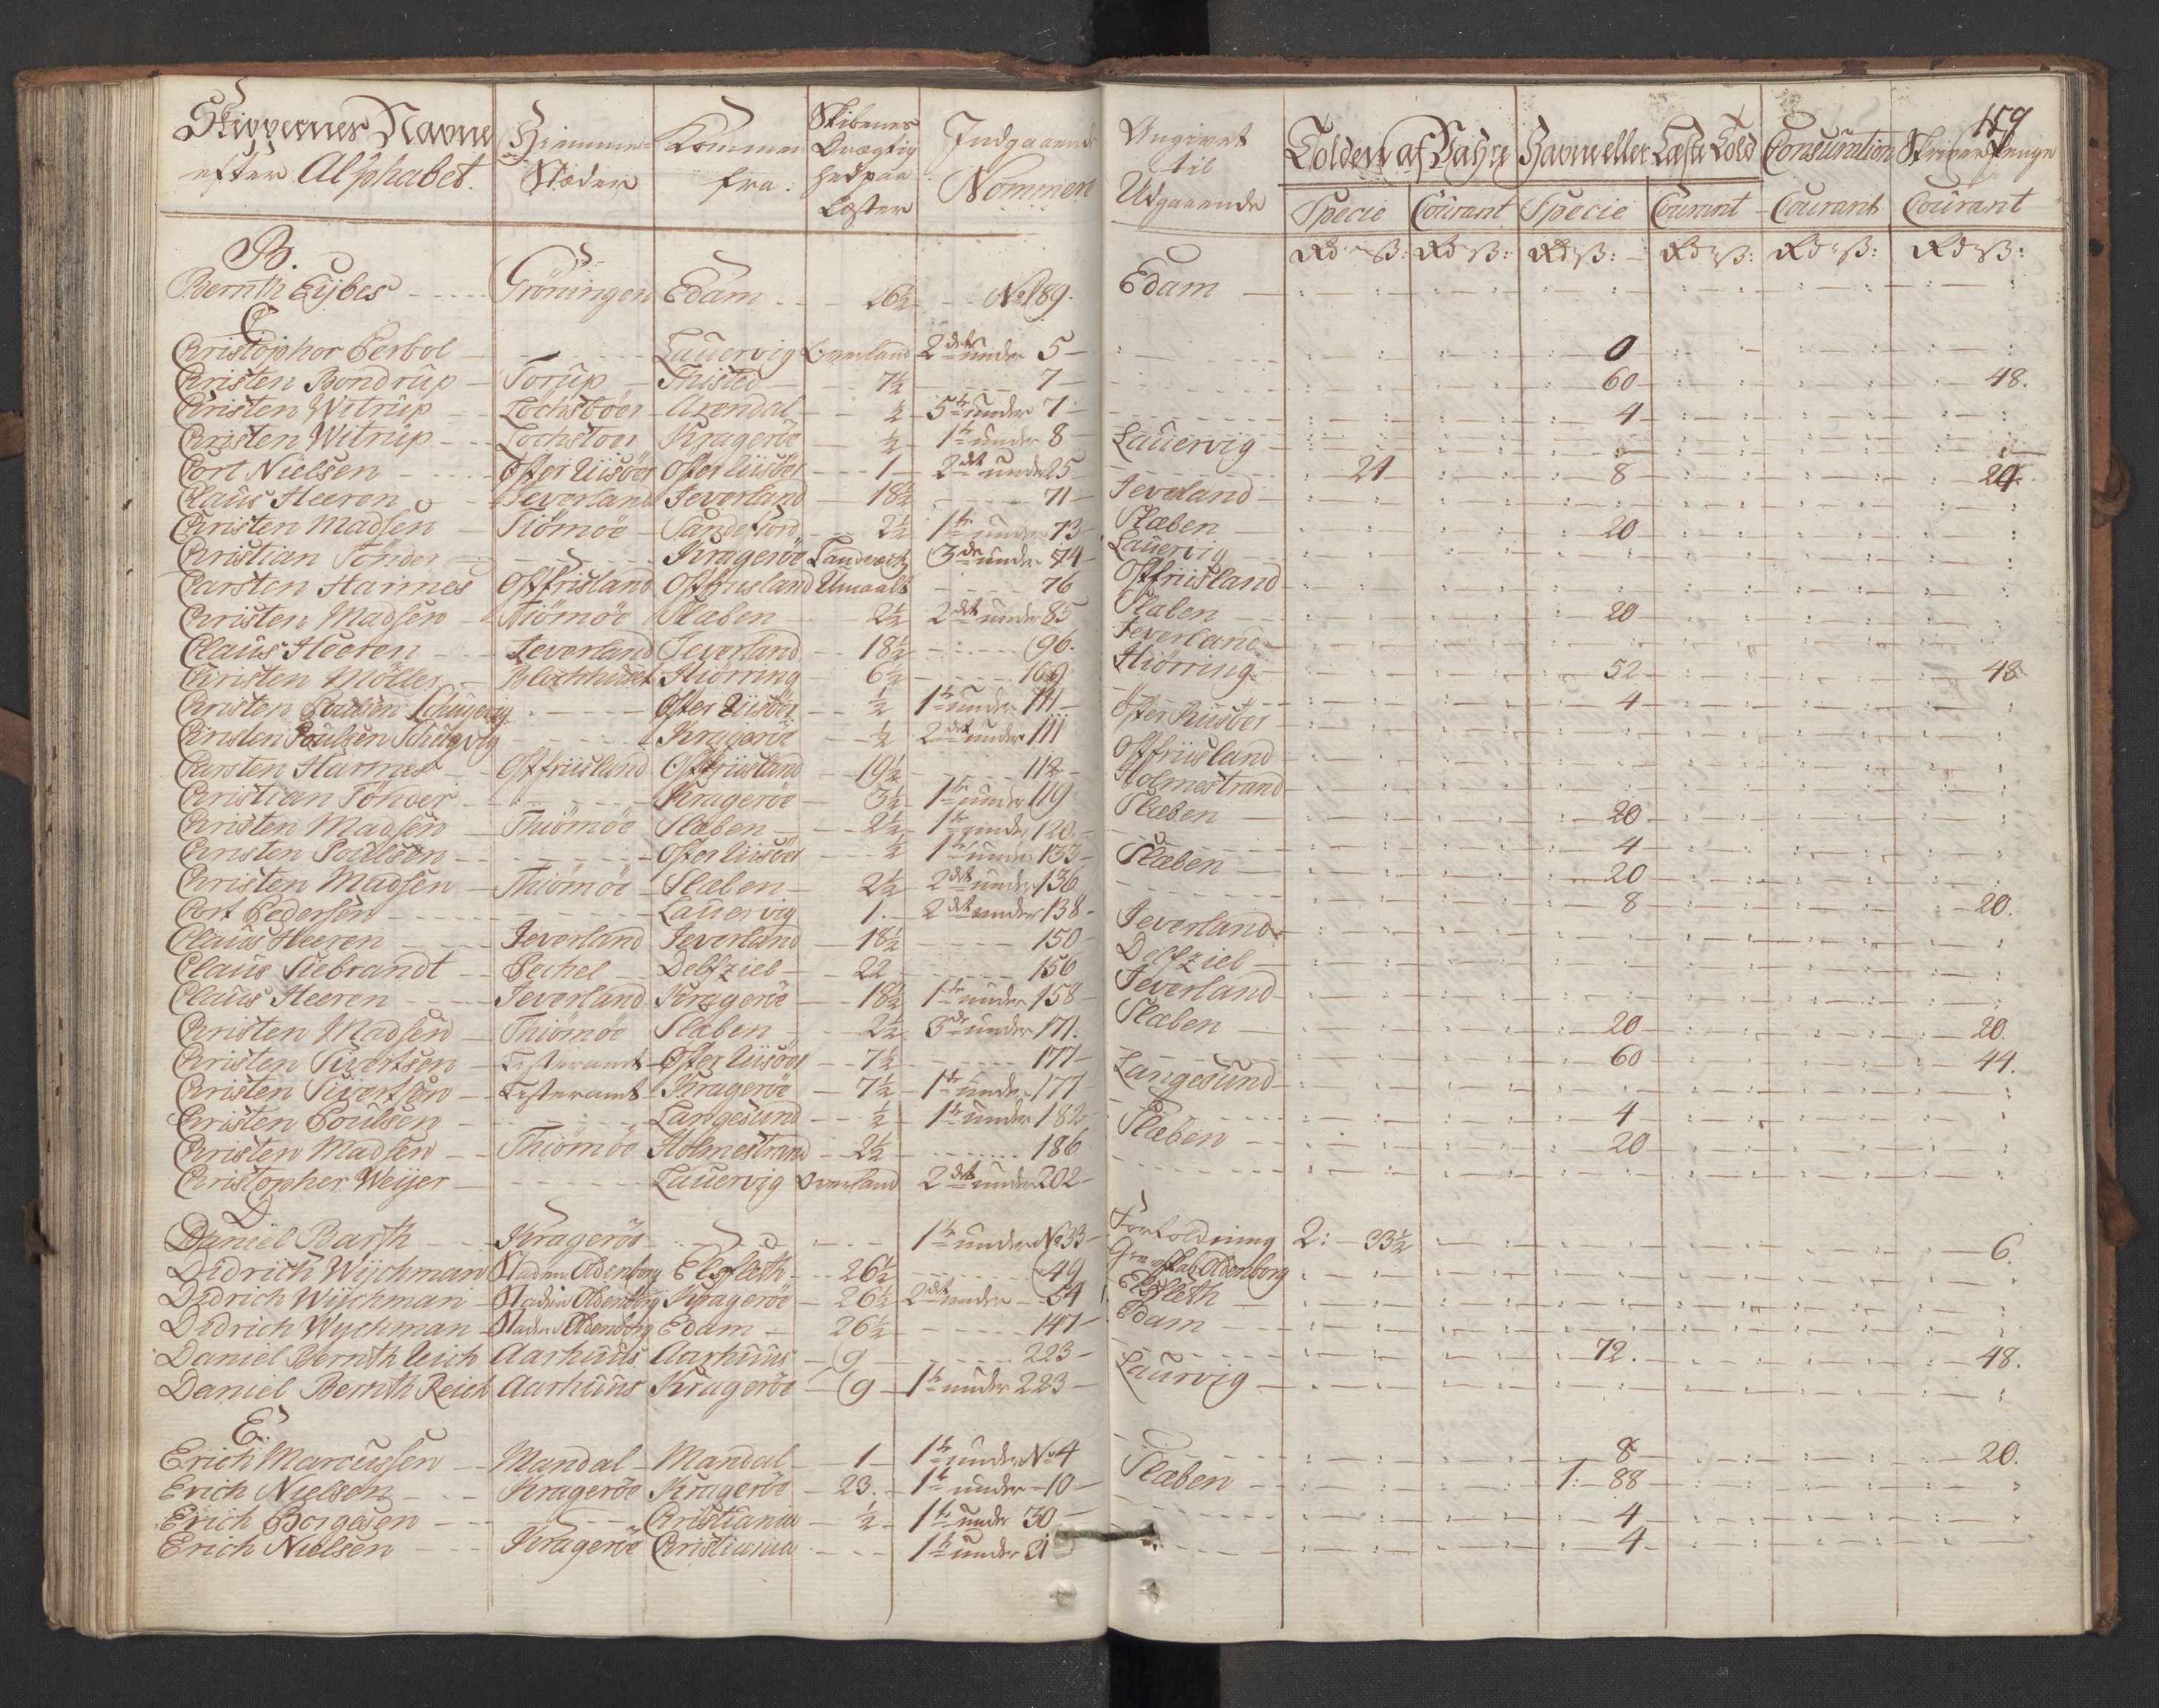 159
Skippernes Navne efter Alphabet. Hiemme-Stæder Kommen fra. Skibenes Drægtighed paa Læster Indgaaende Nommer Angivet til Udgaaende Tolden af Vahre Havne eller Læste Told Consumtion Skriver Penge
Specie Courant Specie Courant Courant Courant
Rd ß: Rd ß: Rd ß: Rd ß: Rd ß: Rd ß:
B.
Bernth Eijbes Gröningen Edam 26½ No 189. Edam
C
Christopher Perbol Lauervig Overland 2det under 5 0
Christen Bondrup Torup Thisted 7½ 7 60 48.
Christen Witrup Löchstöer Arendal ½ 5te under 7 4
Christen Witrup Löchstöer Krageröe ½ 1te under 8 Lauervig
Cort Nielsen Öster Riisöer Öster Riisöer 1 2det under 25 21 8 24
Claus Heeren Jeverland Jeverland 18½ 71 Jeverland
Christen Madsen Tiömöe Sandefiord 2½ 1te under 73 Slæben 20
Christian Tönder Krageröe 3de under 74 Lauervig
Carsten Harmes Ostfrisland Ostfrisland Umaalt 76 Ostfriisland
Christen Madsen Tiömöe Slæben 2½ 2det under 85 Slæben 20
Claus Heeren Jeverland Jeverland 18½ 96. Jeverland
Christen Möller Blochhuset Hiörring 6½ 109 Hiörring 52 48
Christen Poulsen Öster Riisöer ½ 1te under 111 4
Christen Poulsen Krageröe ½ 2det under 111 Öster Riisöer
Carsten Harmes Ostfriisland Ostfriisland 19½ 112 Ostfriisland
Christian Tönder Krageröe 3½ 1te under 119 Holmestrand
Christen Madsen Thiömöe Slæben 2½ 1te under 120. Slæben 20
Christen Poulsen Öster Riisöer ½ 1te under 133 4
Christen Madsen Thiömöe Slæben 2½ 2det under 136 Slæben 20
Cort Pedersen Lauervig 1. 2det under 138 8 20.
Claus Heeren Jeverland Jeverland 18½ 150 Jeverland
Claus Siebrandt Pechel Delfziel 22 156 Delfziel
Claus Heeren Jeverland Krageröe 18½ 1te under 158 Jeverland
Christen Madsen Thiömöe Slæben 2½ 3de under 171. Slæben 20 20.
Christen Sivertsen Listeramt Öster Riisöer 7½ 177 60 44.
Christen Sivertsen Listeramt Krageröe 7½ 1te under 177 Langesund
Christen Poulsen Langesund ½ 1te under 182 4
Christen Madsen Thiömöe Holmestrand 2½ 186 Slæben 20
Christopher Weijer Lauervig Overland 2det under 202
D
Daniel Barth Krageröe 1te under No 33 Fortoldning 2: 33½ 6.
Didrich Wijchman Staden Oldenborg Elsfleth 26½ 49 Grevskab Oldenborg
Didrich Wijchman Staden Oldenborg Krageröe 26½ 2det under 54 Elsfleth
Didrich Wychman Staden Oldenborg Edam 26½ 147 Edam
Daniel Bernth Reich Aarhuus Aarhuus 9 223 72. 48.
Daniel Bernth Reich Aarhuus Krageröe 9 1te under 223 Laurvig
E.
Erich Marcussen Mandal Mandal 1 1te under No 4 8 20.
Erich Nielsen Krageröe Krageröe 23. 1te under 10 Slæben 1: 88
Erich Borgesen Christiania ½ 1te under 30 4
Erich Nielsen Krageröe Christiania 1te under 21 4